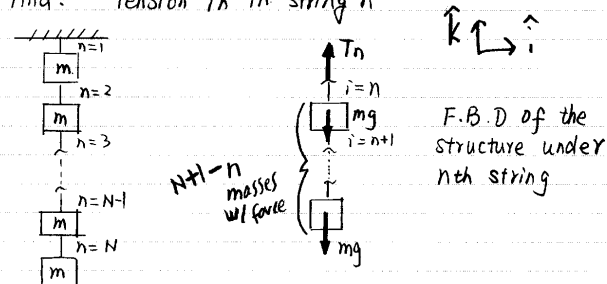 Tension Tn in string n
n=1
m
n=2
m
n=3
n=N-1
m
n=N
m
Tn
i=n
mg
i=n+1
N+1-n
masses
w/ force
mg
k̂
î
F.B.D of the
structure under
nth string